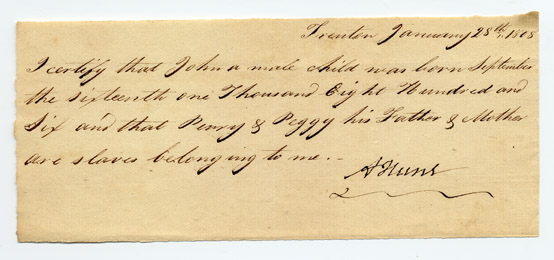 Trenton January 28th, 1808
I certify that John a male child was born September
the sixteenth one Thousand Eight Hundred and
Six and that Perry & Peggy his Father & Mother
are slaves belonging to me. -
A Hunt